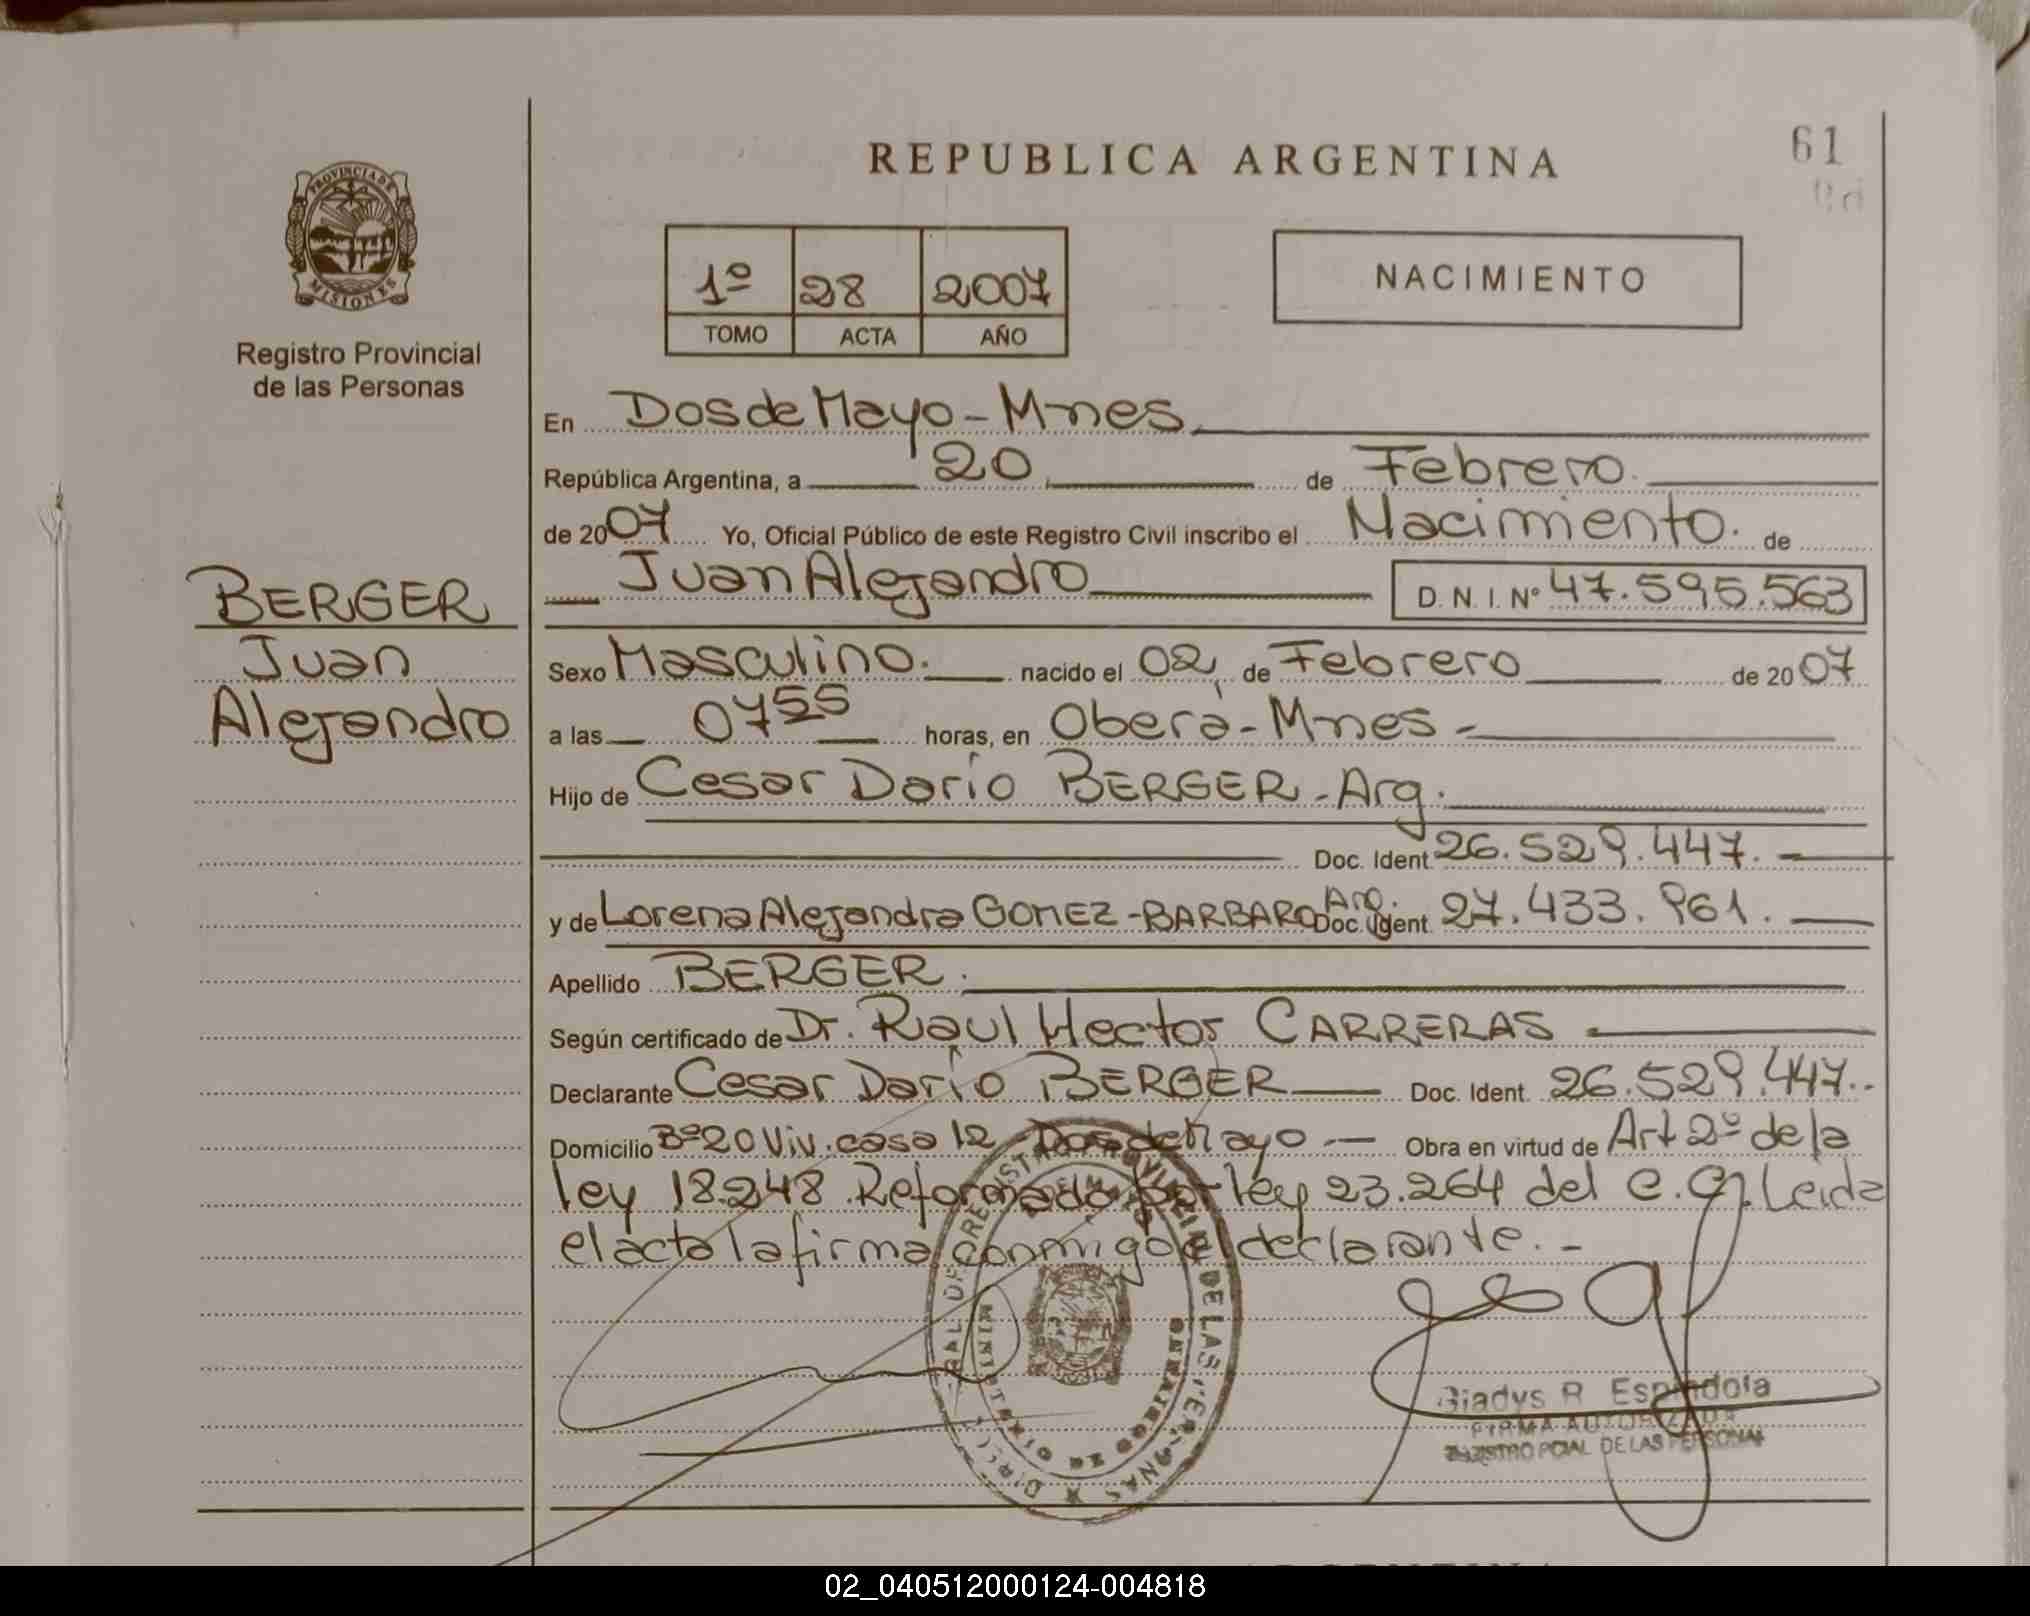 REPUBLICA ARGENTINA
61
PROVINCIA DE
MISIONES
Registro Provincial
de las Personas
1º 28 2007
TOMO ACTA AÑO
NACIMIENTO
En Dos de Mayo - Mnes
República Argentina, a 20 de Febrero.
de 2007 Yo, Oficial Público de este Registro Civil inscribo el Nacimiento. de
Juan Alejandro D. N. I. Nº 47.595.563
BERGER
Juan
Alejandro
Sexo Masculino. nacido el 02, de Febrero de 2007
a las 0755 horas, en Oberá - Mnes -
Hijo de Cesar Darío BERGER - Arg.
Doc. Ident. 26.529.447. -
y de Lorena Alejandra GOMEZ - BARBARO Arg. Doc. Ident. 27.433.961. -
Apellido BERGER.
Según certificado de Dr. Raúl Hector CARRERAS
Declarante Cesar Darío BERGER Doc. Ident. 26.529.447..
Domicilio Bº 20 Viv. casa 12 Dos de Mayo. - Obra en virtud de Art 2º de la
ley 18.248. Reformado por ley 23.264 del C. C. Leida
el acta la firma conmigo el declarante. -
DE LAS PERSONAS
Gladys R. Espindola
FIRMA AUTORIZADA
REGISTRO PCIAL DE LAS PERSONAS
02_040512000124-004818